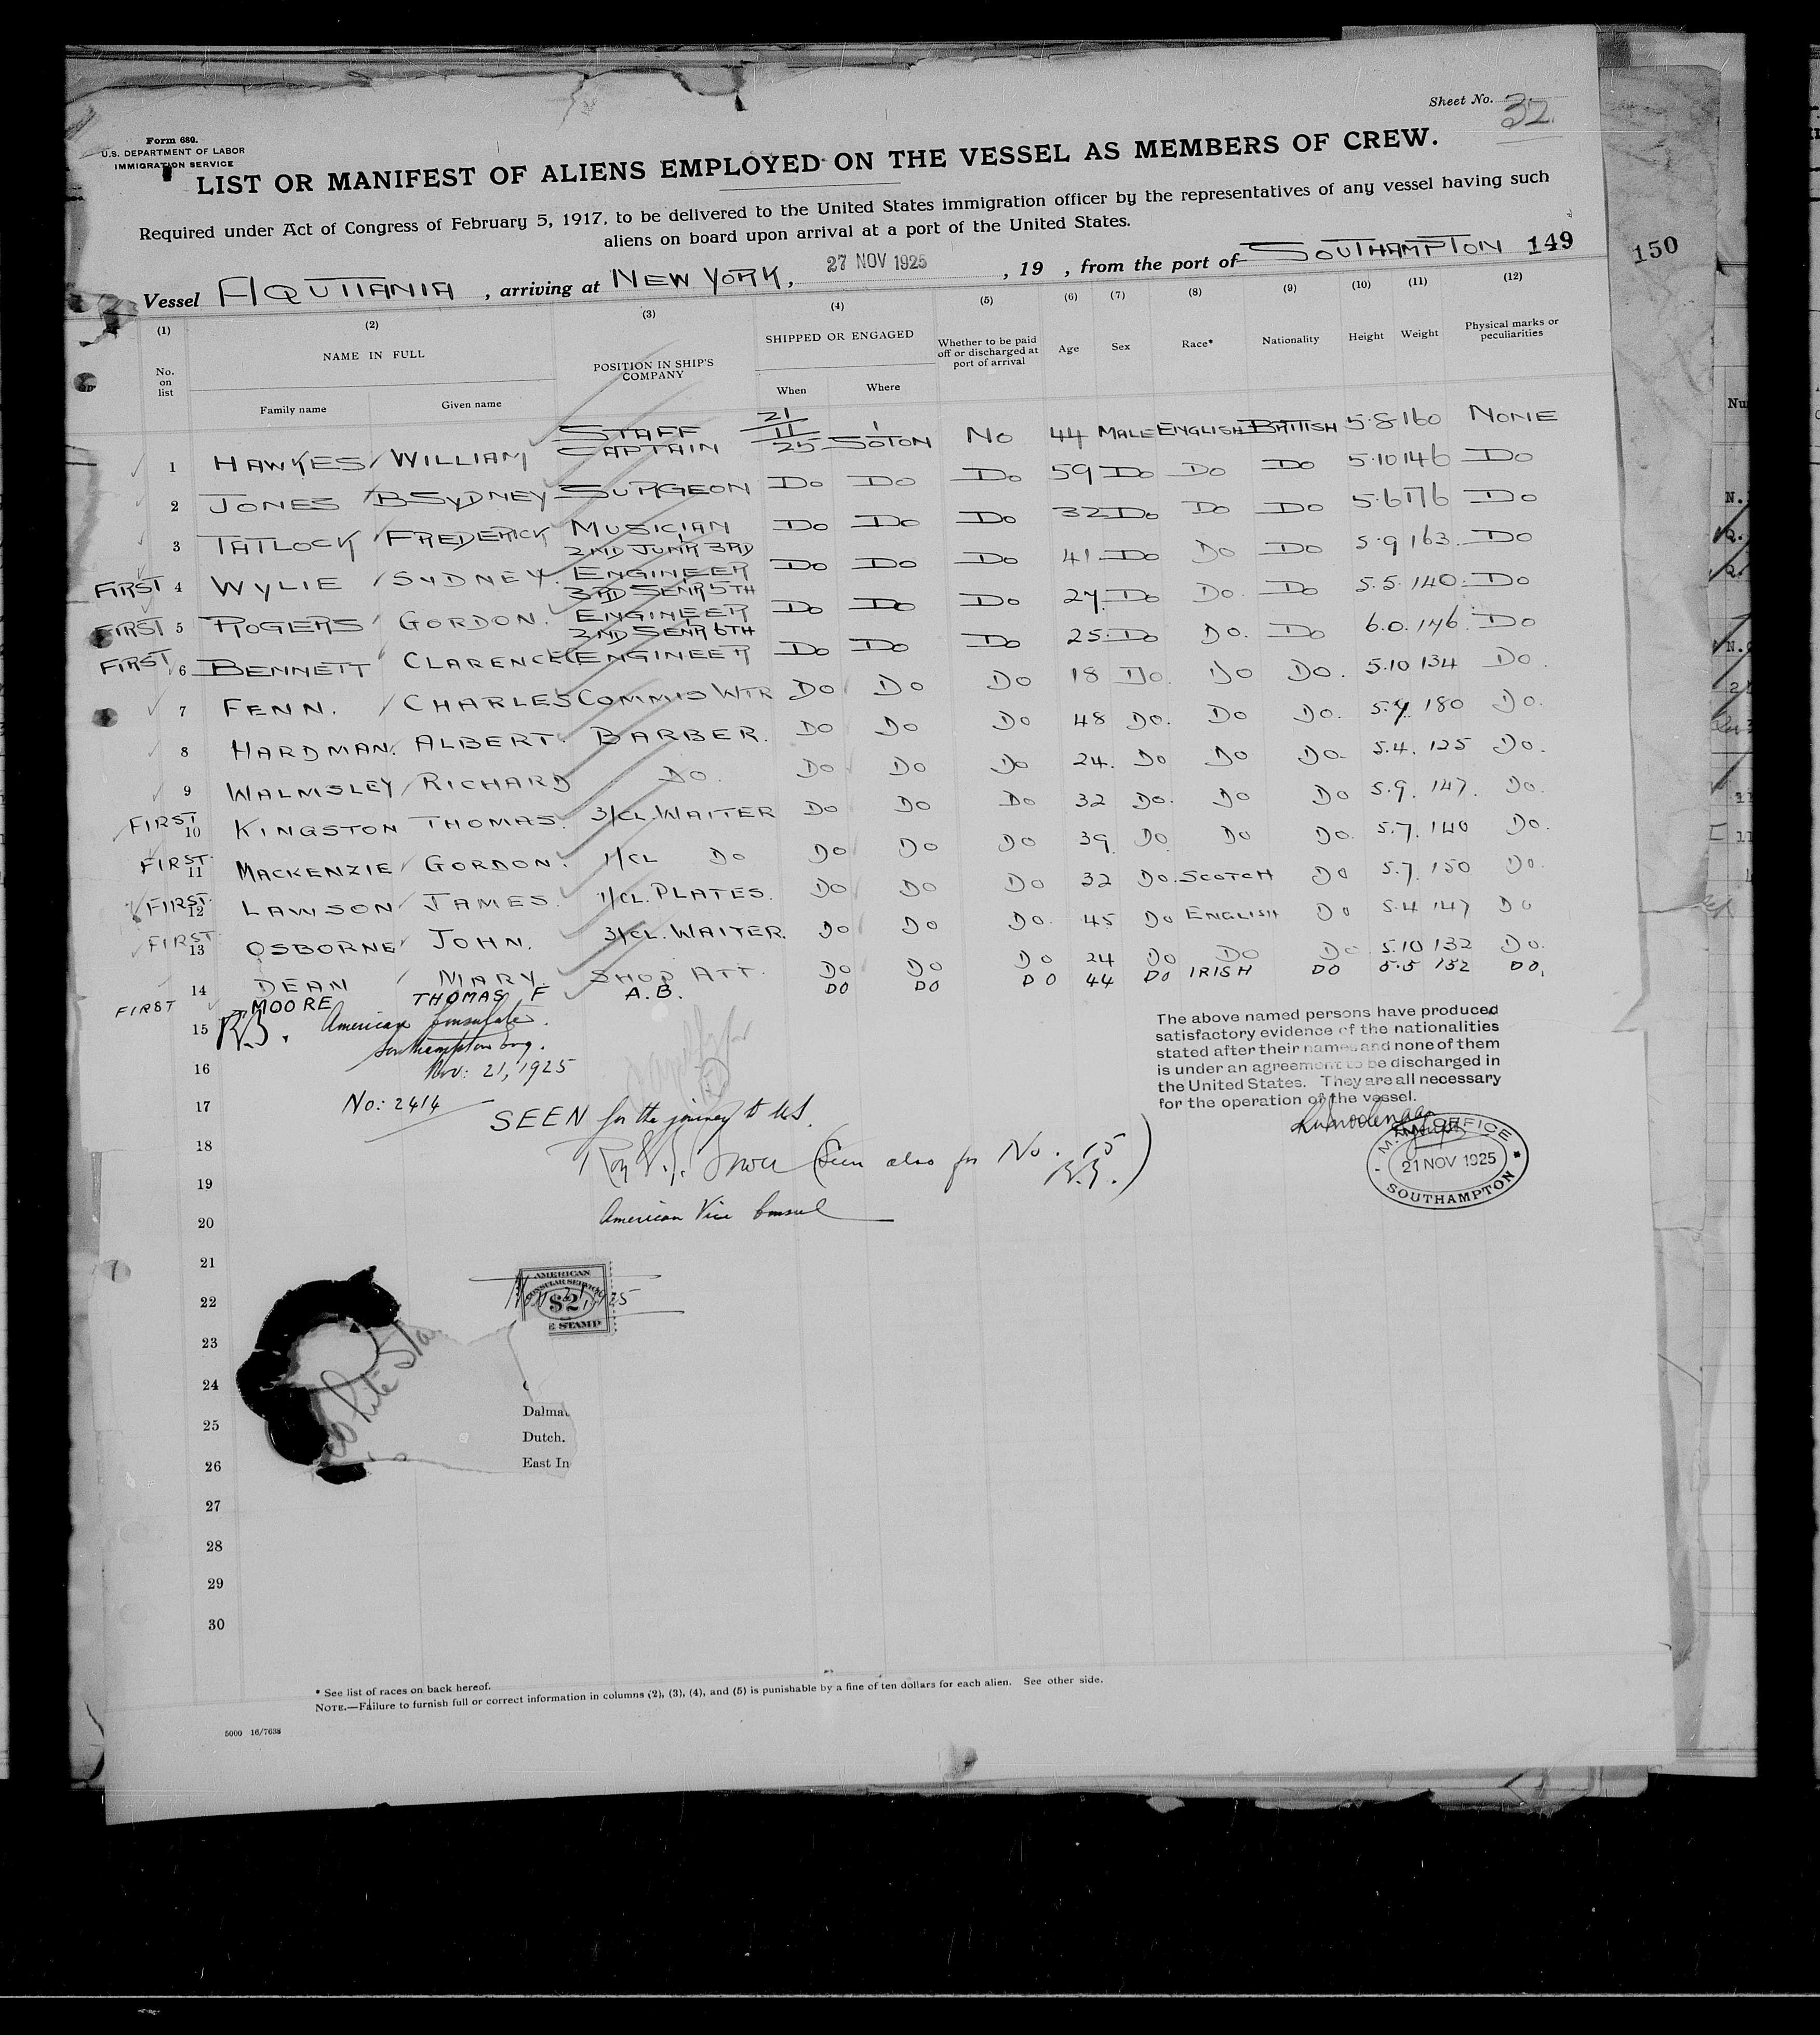 Sheet No. 32
Form 680.
U.S. DEPARTMENT OF LABOR
IMMIGRATION SERVICE
LIST OR MANIFEST OF ALIENS EMPLOYED ON THE VESSEL AS MEMBERS OF CREW.
Required under Act of Congress of February 5, 1917, to be delivered to the United States immigration officer by the representatives of any vessel having such
aliens on board upon arrival at a port of the United States.
149
150
Vessel AQUITANIA, arriving at NEW YORK, 27 NOV 1925, 19 , from the port of SOUTHAMPTON
(1) (2) (3) (4) (5) (6) (7) (8) (9) (10) (11) (12)
No. on list NAME IN FULL POSITION IN SHIP'S COMPANY SHIPPED OR ENGAGED Whether to be paid off or discharged at port of arrival Age Sex Race* Nationality Height Weight Physical marks or peculiarities
Family name Given name When Where
1 HAWKES WILLIAM STAFF CAPTAIN 21/11/25 SOTON NO 44 MALE ENGLISH BRITISH 5.8 160 NONE
2 JONES B SYDNEY SURGEON DO DO DO 59 DO DO DO 5.10 146 DO
3 TATLOCK FREDERICK MUSICIAN DO DO DO 32 DO DO DO 5.6 176 DO
FIRST 4 WYLIE SYDNEY. 2ND JUNR 3RD ENGINEER DO DO DO 41 DO DO DO 5.9 163 DO
FIRST 5 ROGERS GORDON. 3RD SENR 5TH ENGINEER DO DO DO 27. DO DO. DO 5.5. 140. DO
FIRST 6 BENNETT CLARENCE 2ND SENR 6TH ENGINEER DO DO DO 25. DO DO. DO 6.0. 146. DO
7 FENN. CHARLES COMMIS WTR DO DO DO 18 DO. DO DO. 5.10 134 DO.
8 HARDMAN. ALBERT. BARBER. DO DO DO 48 DO. DO DO. 5.9. 180 DO.
9 WALMSLEY RICHARD DO. DO DO DO 24. DO DO DO. 5.4. 125 DO.
FIRST 10 KINGSTON THOMAS. 3/CL. WAITER DO DO DO 32 DO. DO DO 5.9. 147. DO.
FIRST. 11 MACKENZIE GORDON. 1/CL DO DO DO DO 39 DO DO DO. 5.7. 140 DO.
FIRST. 12 LAWSON JAMES. 1/CL. PLATES. DO DO DO 32 DO. SCOTCH DO 5.7. 150 DO.
FIRST 13 OSBORNE JOHN. 3/CL. WAITER. DO DO DO. 45 DO ENGLISH DO 5.4 147 DO
14 DEAN MARY. SHOP ATT. DO DO DO 24 DO DO DO 5.10 132 DO.
FIRST 15 MOORE THOMAS F A.B. DO DO DO 44 DO IRISH DO 5.5 152 DO.
American Consulate.
Southampton Eng.
Nov: 21, 1925
No: 2414
SEEN for the journey to U.S.
(Seen also for No. 15
American Vice Consul
The above named persons have produced
satisfactory evidence of the nationalities
stated after their names and none of them
is under an agreement to be discharged in
the United States. They are all necessary
for the operation of the vessel.
OFFICE
21 NOV 1925
SOUTHAMPTON
16
17
18
19
20
21
22
23
24
25
26
27
28
29
30
AMERICAN
CONSULAR SERVICE
$2
E STAMP
Nov 21, 1925
White Sta
Dalmat
Dutch.
East In
* See list of races on back hereof.
NOTE.—Failure to furnish full or correct information in columns (2), (3), (4), and (5) is punishable by a fine of ten dollars for each alien. See other side.
5000 16/7638